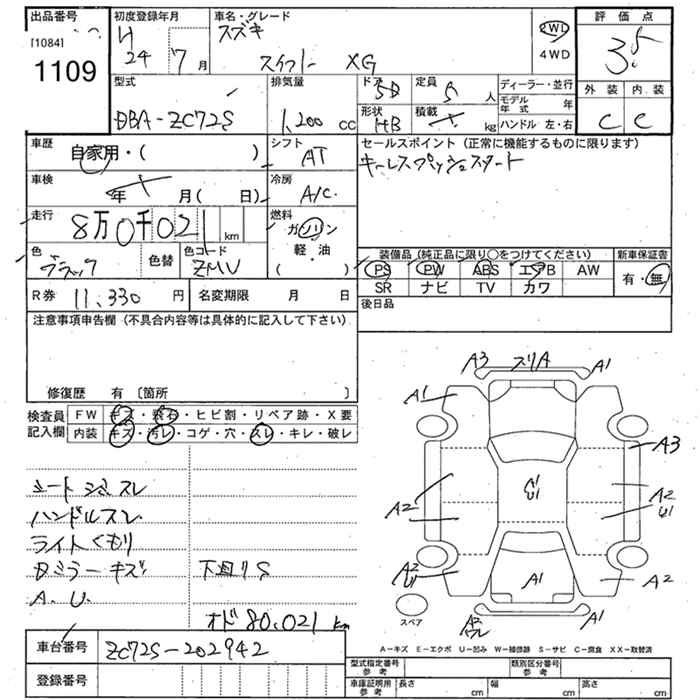 出品番号
[1084]
1109
初度登録年月
H
24 7月
車名・グレード
スズキ
スイフト XG
2WD
4WD
評価点
3.5
外装 内装
C C
型式
DBA-ZC72S
排気量
1,200 cc
ドア
5D
定員
5 人
形状
HB
積載
kg
ディーラー・並行
モデル年式 年
ハンドル 左・右
車歴
自家用・( )
シフト
AT
セールスポイント(正常に機能するものに限ります)
キーレスプッシュスタート
車検
年 月( 日)
冷房
A/C
走行
8万0千021 km
燃料
ガソリン
軽・油
( )
色
ブラック
色替
色コード
ZMV
装備品(純正品に限り○をつけてください)
PS PW ABS エアB AW
SR ナビ TV カワ
新車保証書
有・無
R券 11,330 円
名変期限 月 日
後日品
注意事項申告欄(不具合内容等は具体的に記入して下さい)
修復歴 有〔箇所 〕
検査員記入欄
FW キズ・飛石・ヒビ割・リペア跡・X要
内装 キズ・汚レ・コゲ・穴・スレ・キレ・破レ
シートシミスレ
ハンドルスレ
ライトくもり
Dミラーキズ
下廻りS
A.U.
オド80,021km
車台番号 ZC72S-202942
登録番号
A3 スリA A1
A1
A3
A1
U1
A2
A2
U1
A2
A2
A1
スペア
A-キズ E-エクボ U-凹み W-補修跡 S-サビ C-腐食 XX-取替済
型式指定番号
参考
類別区分番号
参考
車庫証明用
参考
長さ cm 幅 cm 高さ cm